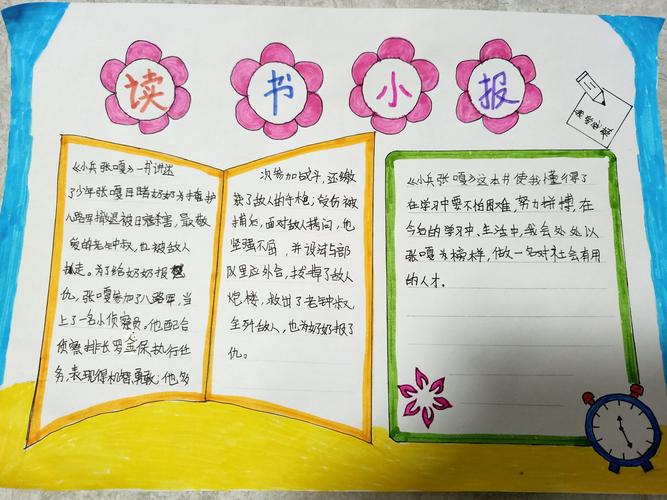 读书小报
《小兵张嘎》一书讲述
了少年张嘎目睹奶奶为掩护
八路军撤退被日寇杀害,最敬
爱的老钟叔,也被敌人
抓走。为了给奶奶报
仇,张嘎参加了八路军,当
上了一名小侦察员。他配合
侦察排长罗金保,执行任
务,表现得机智勇敢;他多
次参加战斗,还缴
获了敌人的手枪;最后被
捕后,面对敌人拷问,他
坚强不屈,并设法与部
队里应外合,拔掉了敌人
炮楼,救出了老钟叔
全歼敌人,也为奶奶报了
仇。
《小兵张嘎》这本书使我懂得了
在学习中要不怕困难,努力拼搏,在
今后的学习中、生活中,我会处处以
张嘎为榜样,做一名对社会有用
的人才.